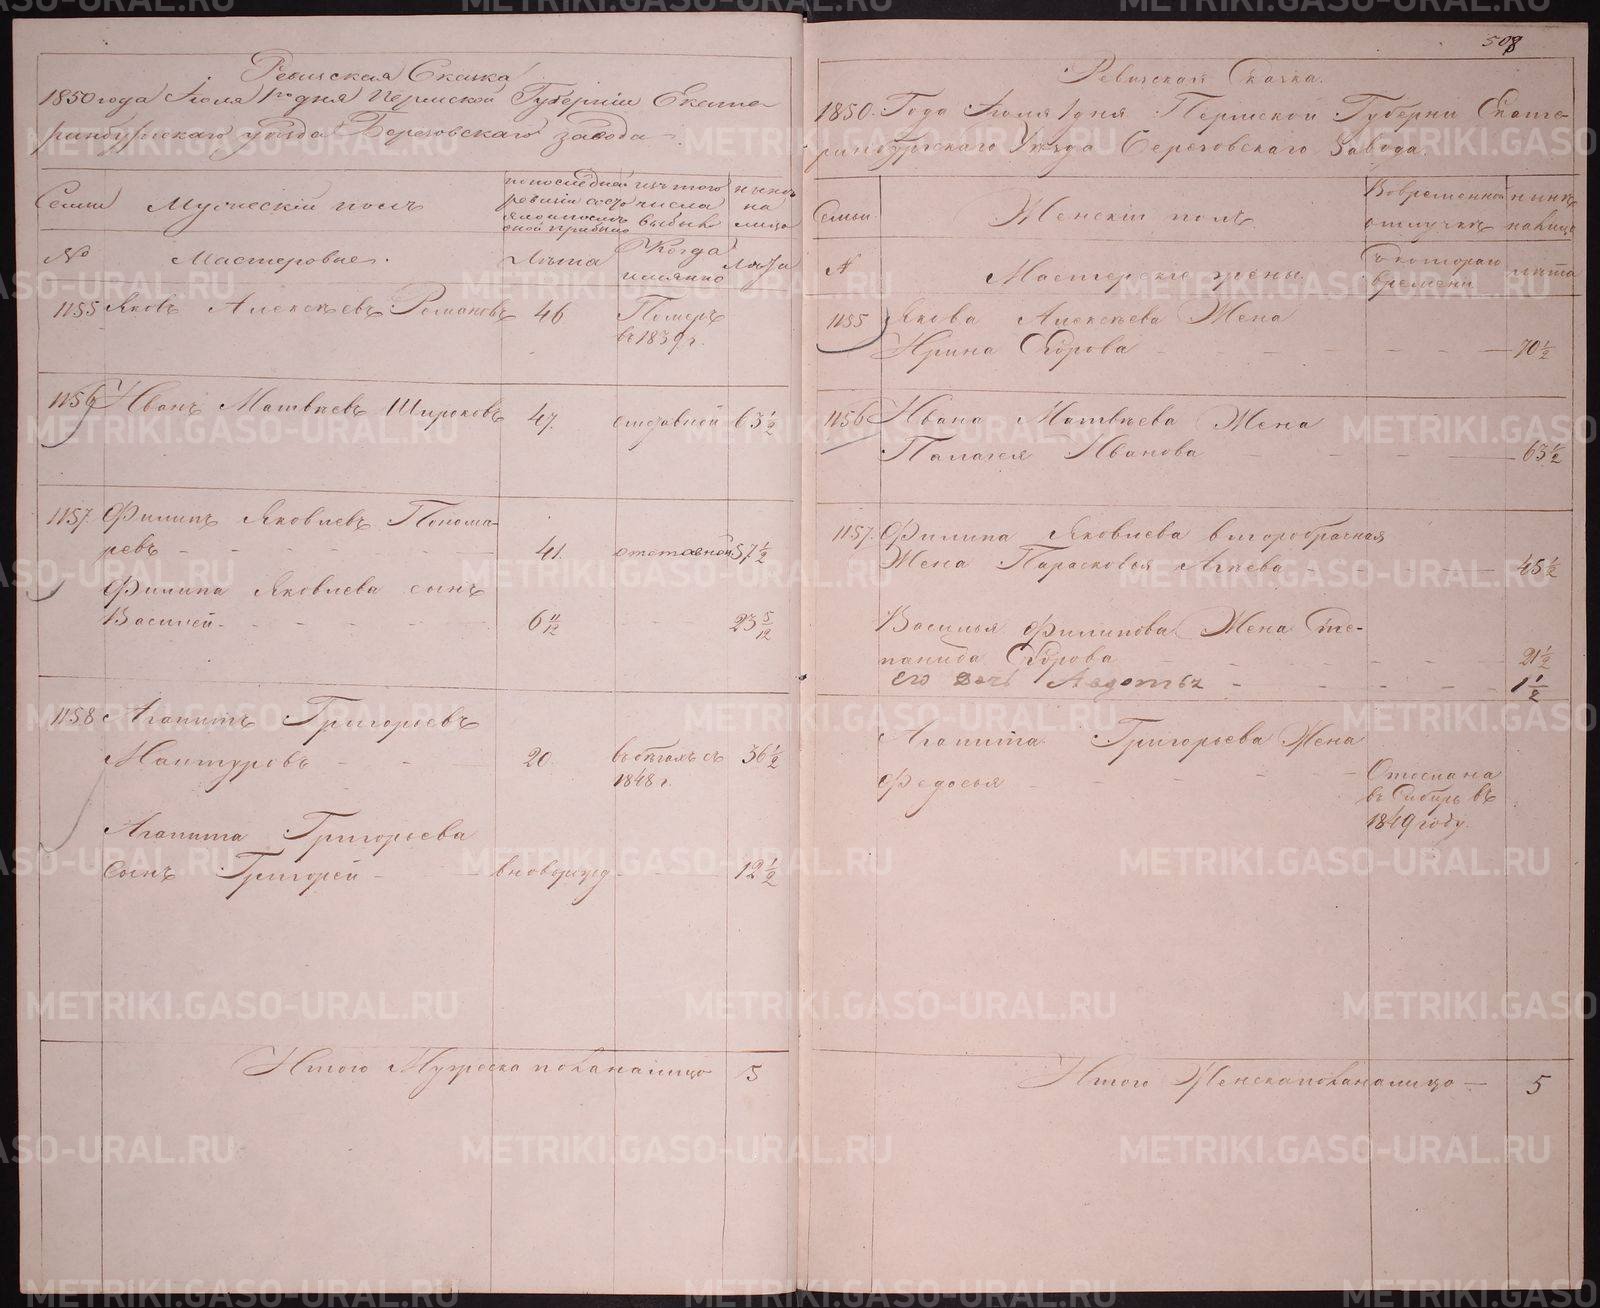 Ревизская Сказка
1850 года Іюля 1го дня Пермской Губерніи Екате-
ринбургскаго уѣзда Березовскаго завода
Семьи
Мужескій полъ
по последней ревизіи состояло и послѣ оной прибыло
изъ того числа выбыло
нынѣ на лицо
№
Мастеровые.
Лѣта
Когда имянно
Лѣта
1155 Яковъ Алексѣевъ Романовъ 46 Померъ
въ 1839 г.
1156 Иванъ Матвѣевъ Широковъ 47. отставной 63 1/2
1157. Филипъ Яковлевъ Понома-
ревъ 41. отставной 57 1/2
Филипа Яковлева сынъ
Василей 6 11/12 23 5/12
1158 Агапитъ Григорьевъ
Мантуровъ 20. въ бѣгахъ съ 36 1/2
1848 г.
Агапита Григорьева
Сынъ Григорей вноворожд 12 1/2
Итого Мужеска пола на лицо 5
508
Ревизская Сказка.
1850. Года Іюля 1 дня Пермской Губерни Екате-
ринбургскаго Уѣзда Березовскаго Завода.
Семьи
Женскій полъ
Во временной отлучкѣ
нынѣ на лицо
№
Мастерскіе жены
Съ котораго времени
лѣта
1155 Якова Алексѣева Жена
Ирина Ѳедорова 70 1/2
1156 Ивана Матвѣева Жена
Палагея Иванова 63 1/2
1157. Филипа Яковлева второбрачная
Жена Парасковья 45 1/2
Василья Филипова Жена Сте-
панида Ѳедорова 21 1/2
его дочь Авдотья 1 1/2
Агапита Григорьева Жена
Федосья Отослана
въ Сибирь въ
1849 году.
Итого Женска пола на лицо 5
METRIKI.GASO-URAL.RU